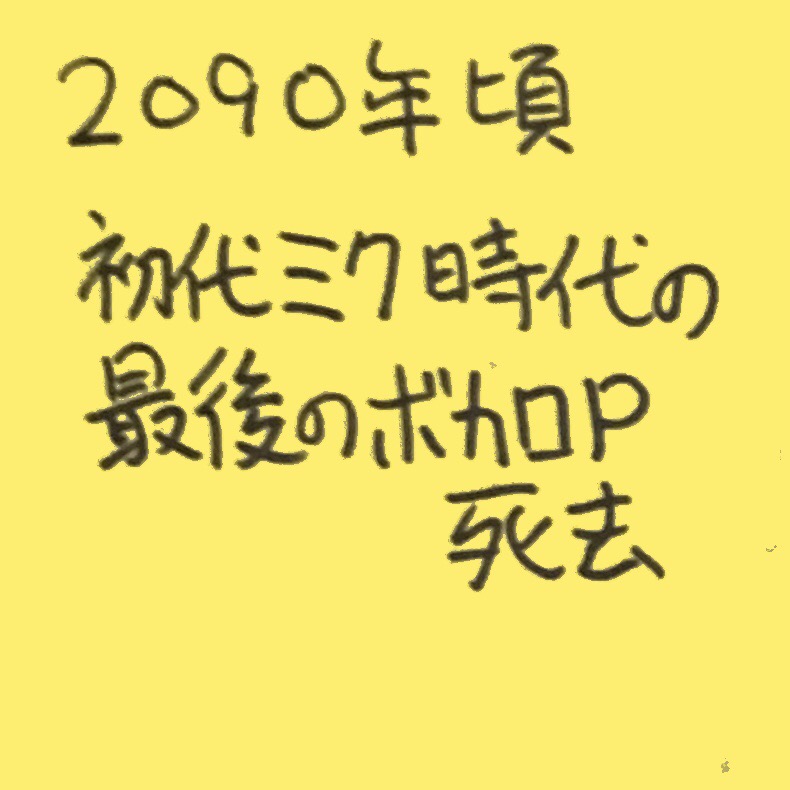 2090年頃
初代ミク時代の
最後のボカロP
死去